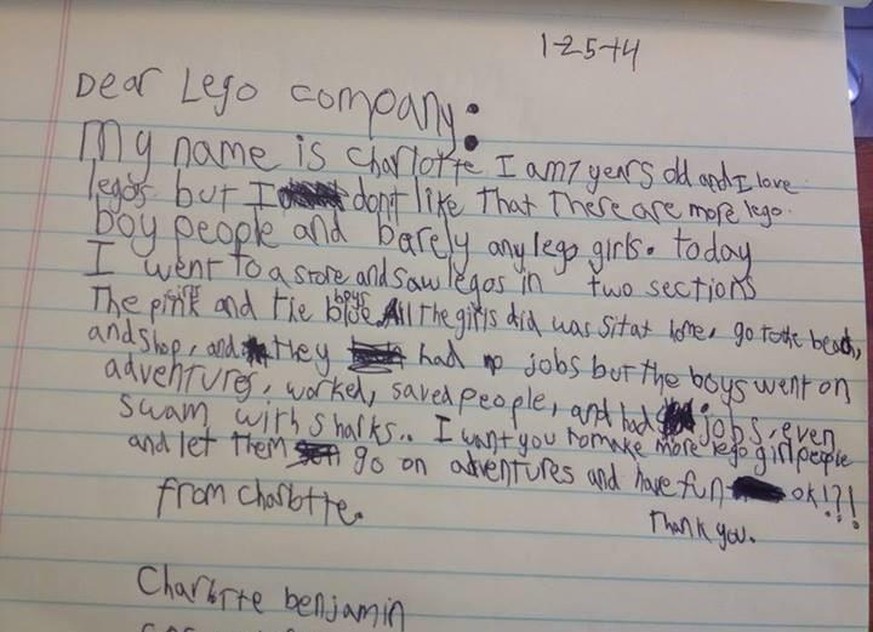 1-25-14
Dear Lego company:
My name is Charlotte I am 7 years old and I love
legos but I don't like that There are more lego
boy people and barely any lego girls. today
I went to a store and saw legos in two sections
The pink girls and the blue boys. All the girls did was sit at home, go to the beach,
and shop, and they had no jobs but the boys went on
adventures, worked, saved people, and had jobs, even
swam with sharks.. I want you to make more lego girl people
and let them go on adventures and have fun ok!?!
from Charlotte.
Thank you.
Charlotte benjamin